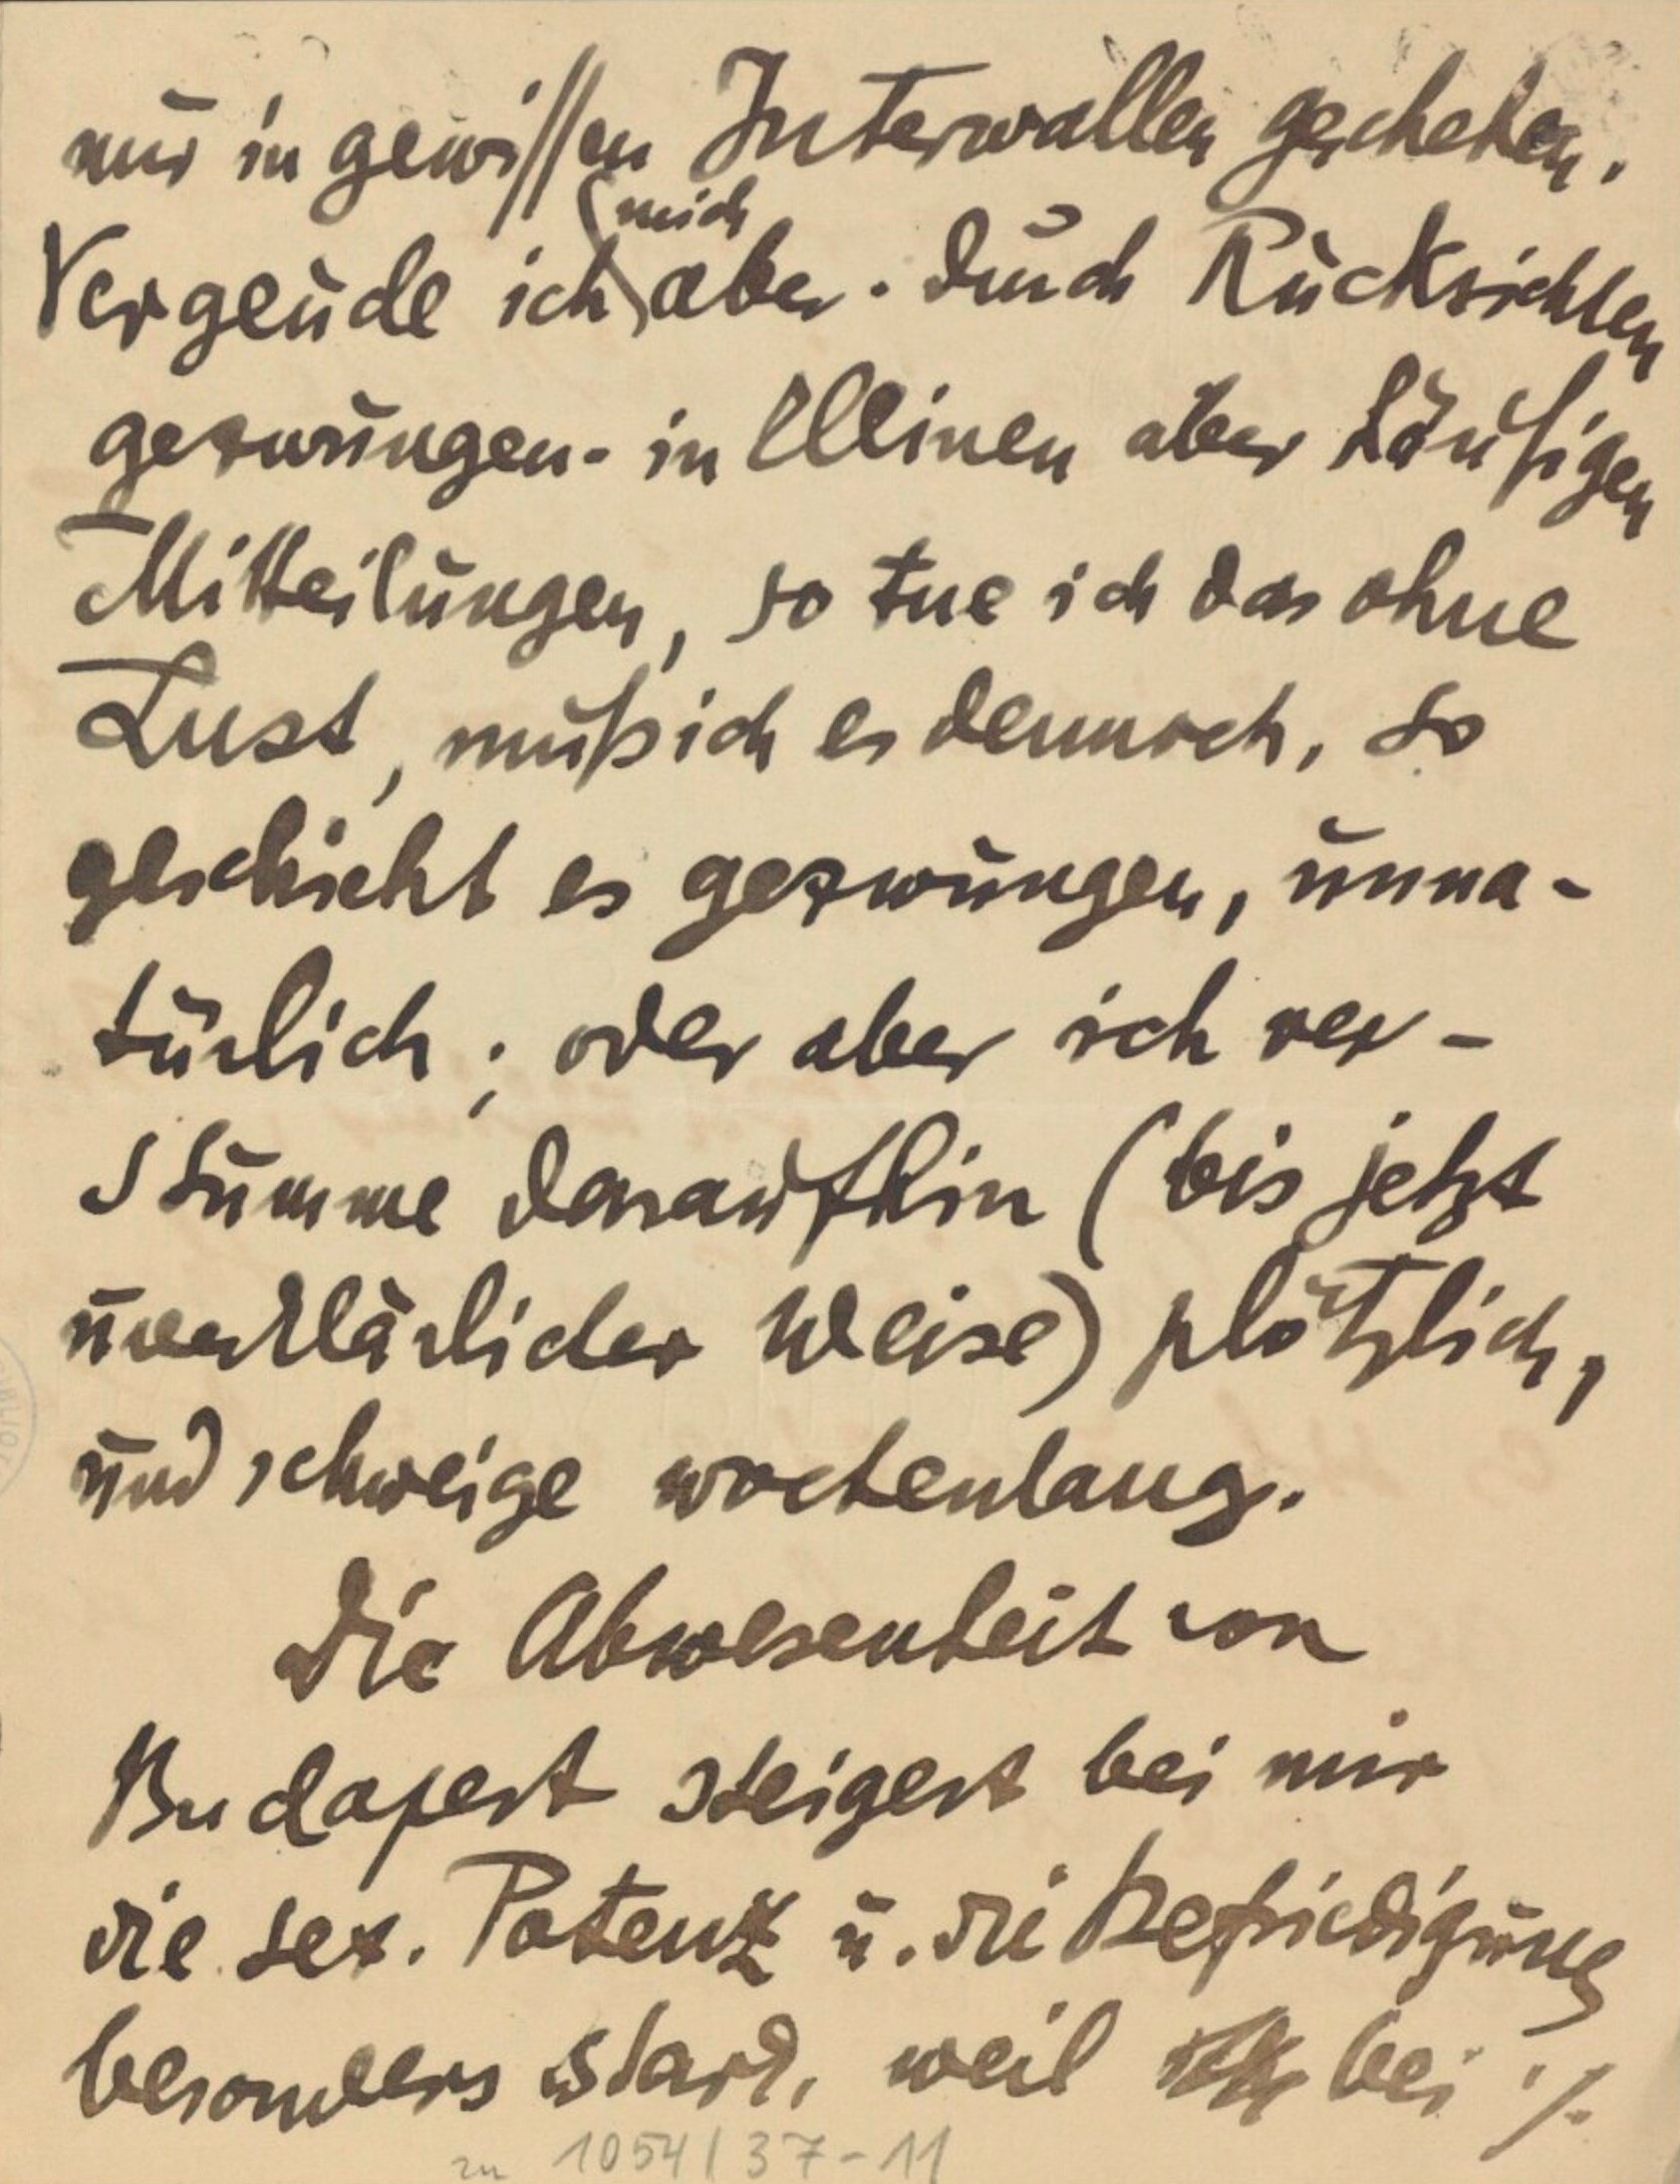 nur in gewissen Intervallen geschehen.
Vergeude ich mich aber - durch Rücksichten
gezwungen - in kleinen aber häufigen
Mitteilungen, so tue ich das ohne
Lust, muß ich es dennoch, so
geschieht es gezwungen, unna-
türlich; oder aber ich ver-
stumme daraufhin (bis jetzt
unerklärlicher Weise) plötzlich,
und schweige wochenlang.
Die Abwesenheit von
Budapest steigert bei mir
die sex. Potenz u. die Befriedigung
besonders stark, weil bei ·/.
zu 1054/37-11